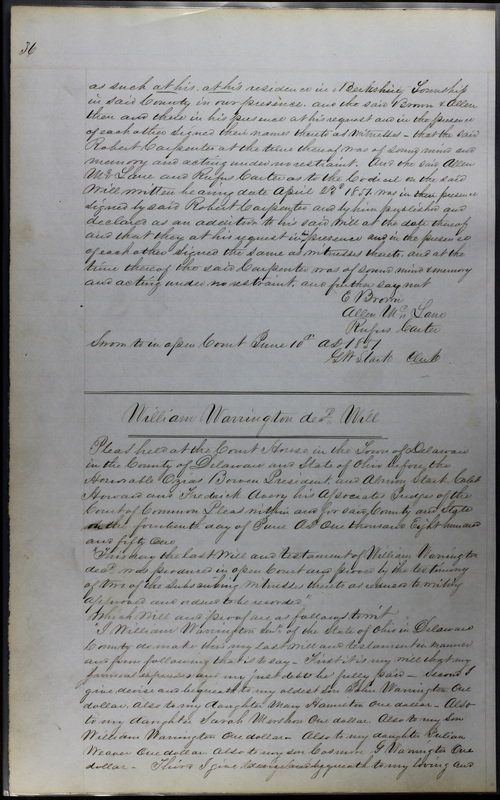 36
as such at his, at his residence in Berkshire Township
in said County in our presence. and the said Brown & Allen
then and there in his presence at his request and in the presence
of each other signed their names thereto as Witnesses - that the said
Robert Carpenter at the time thereof was of sound mind and
memory and acting under no restraint. And the said Allen
Mc Lane and Rufus Carter as to the Codicil on the said
Will written bearing date April 23d 1851. was in their presence
signed by said Robert Carpenter and by him published and
declared as an addition to his said Will at the date thereof
and that they at his request in his presence and in the presence
of each other signed the same as witnesses thereto. and at the
time thereof the said Carpenter was of sound mind & memory
and acting under no restraint. and further say not
E Brown
Allen Mc Lane
Rufus Carter
Sworn to in open Court June 10th AD 1851
G W Stark Clerk
William Warrington decd. Will
Pleas held at the Court House in the Town of Delaware
in the County of Delaware and State of Ohio before the
Honorable Ozias Bowen President and Almon Stark Caleb
Howard and Fredrick Avery his Associates Judges of the
Court of Common Pleas within and for said County and State
on the fourteenth day of June AD One thousand Eight hundred
and fifty One
"This day the last Will and testament of William Warrington
decd. was produced in open Court and proved by the testimony
of two of the subscribing witnesses thereto as reduced to writing
approved and ordered to be recorded"
Which Will and proof are as follows to wit
"I William Warrington Senr. of the State of Ohio in Delaware
County do make this my last will and testament in manner
and form following that is to say - First it is my will that my
funeral expenses and my just debts be fully paid - Second I
give devise and bequeath to my oldest son John Warrington One
dollar. Also to my daughter Mary Hamilton One dollar - Also
to my daughter Sarah One dollar Also to my son
William Warrington One dollar - Also to my daughter Julian
Weaver One dollar Also to my son G Warrington One
dollar - Third I give devise and bequeath to my loving and